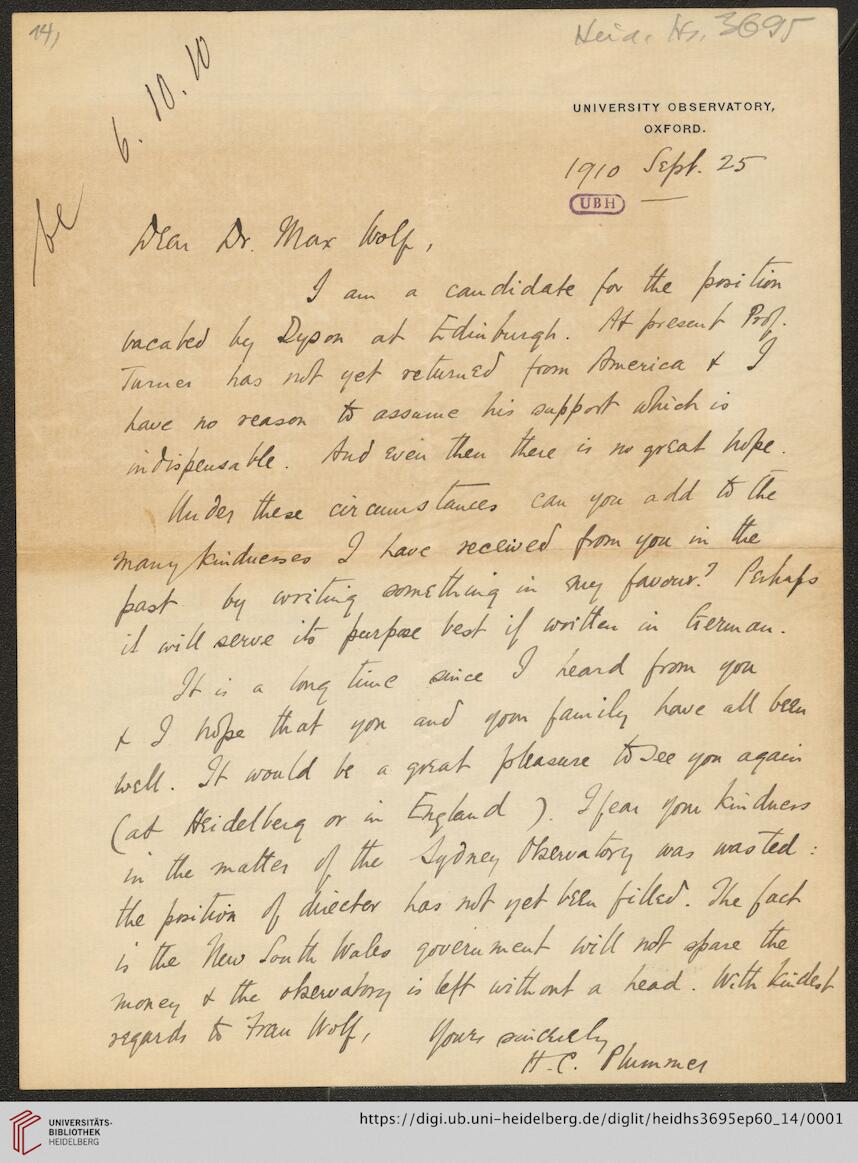 14,
Heid. Hs. 3695
6. 10. 10
be
UNIVERSITY OBSERVATORY,
OXFORD.
1910 Sept. 25
UBH
Dear Dr. Max Wolf,
I am a candidate for the position
vacated by Dyson at Edinburgh. At present Prof.
Turner has not yet returned from America & I
have no reason to assume his support which is
indispensable. And even then there is no great hope.
Under these circumstances can you add to the
many kindnesses I have received from you in the
past by writing something in my favour? Perhaps
it will serve its purpose best if written in German.
It is a long time since I heard from you
& I hope that you and your family have all been
well. It would be a great pleasure to see you again
(at Heidelberg or in England). I fear your kindness
in the matter of the Sydney Observatory was wasted:
the position of director has not yet been filled. The fact
is the New South Wales government will not spare the
money & the observatory is left without a head. With kindest
regards to Frau Wolf,
Yours sincerely
H. C. Plummer
UNIVERSITÄTS-
BIBLIOTHEK
HEIDELBERG
https://digi.ub.uni-heidelberg.de/diglit/heidhs3695ep60_14/0001